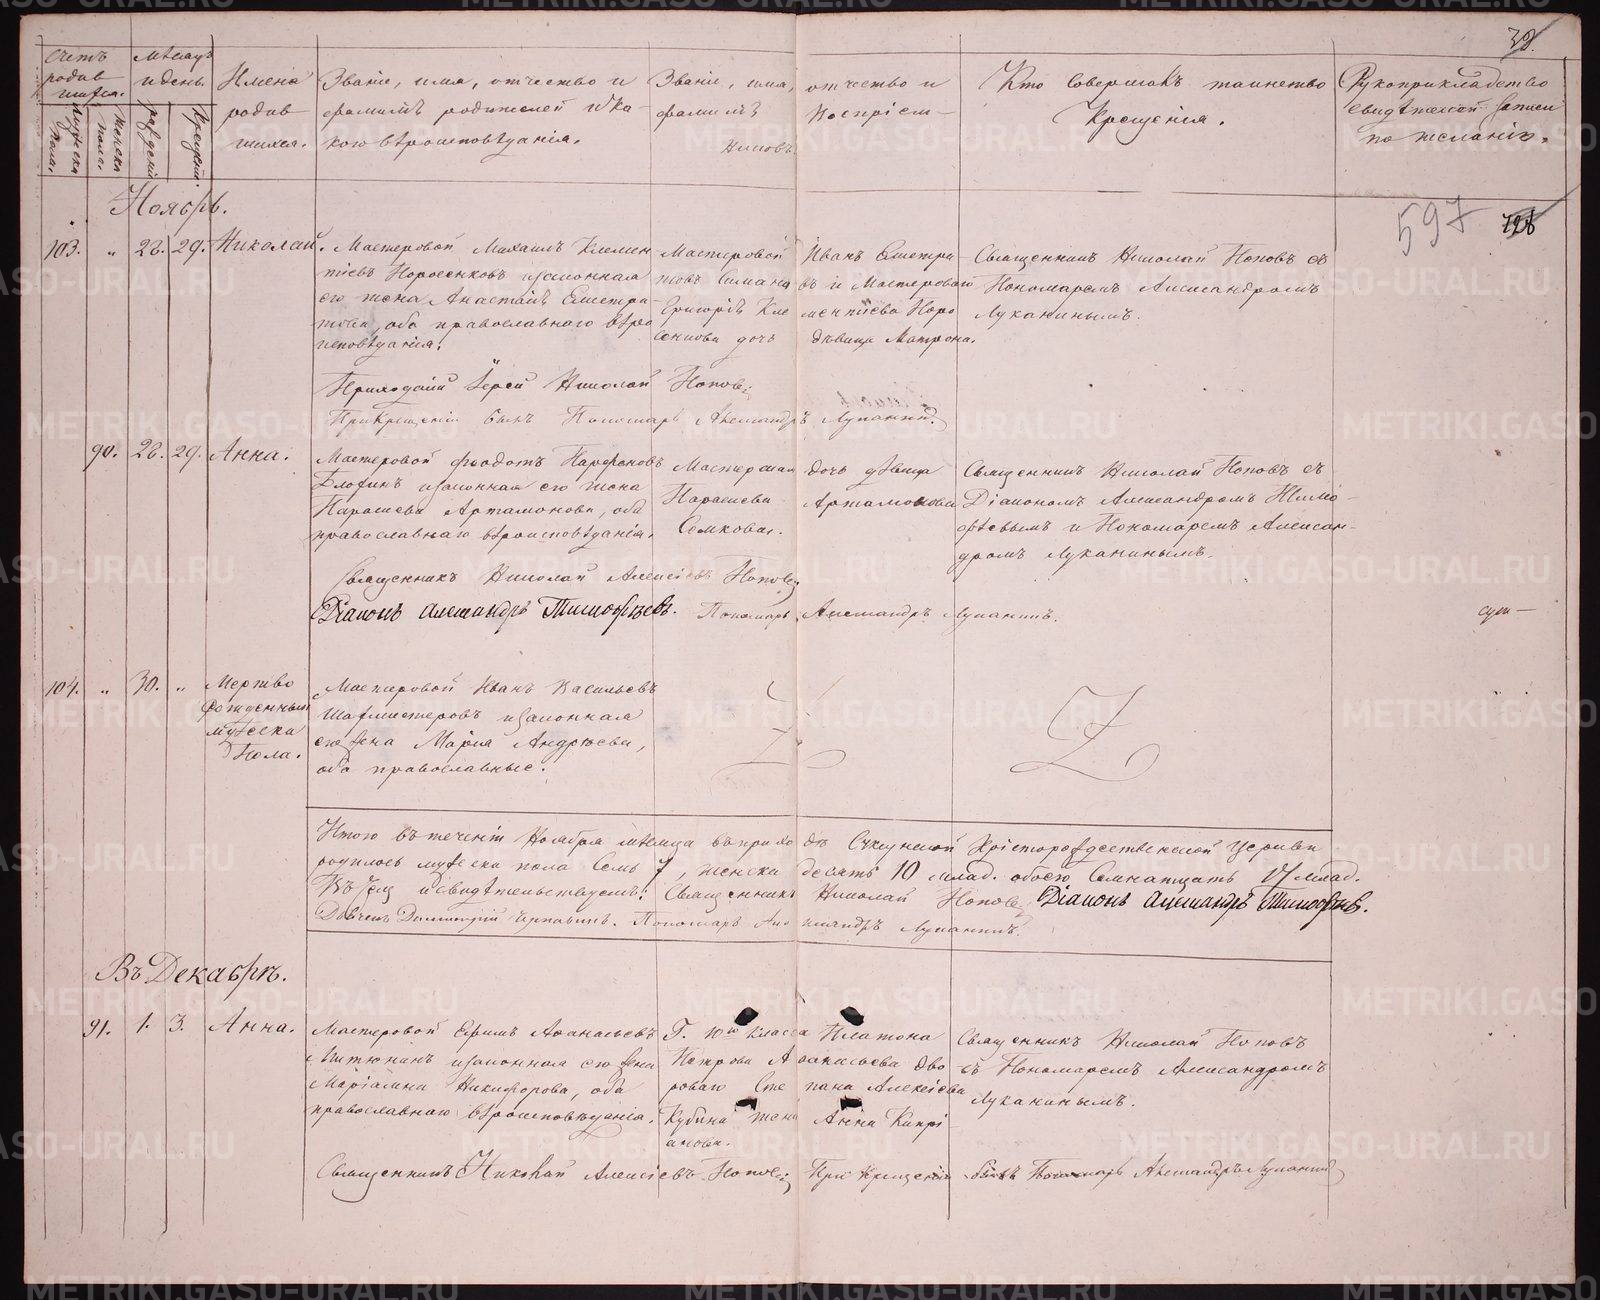 38.
Счетъ родив шихся.
Мужеска пола.
Женска пола.
Мѣсяцъ и день.
рожденія
Крещенія.
Имена родив шихся.
Званіе, имя, отчество и фамилія родителей и ка- кого вѣроисповѣданія.
Званіе, имя, отчество и фамилія Воспріем- никовъ
Кто совершалъ таинство Крещенія.
Рукоприкладство свидѣтелей записи по желанію.
Ноябрь.
597
103. " 28. 29. Николай.
Мастеровой Михаилъ Клемен
тіевъ и законная
его жена Анастасія Евстра-
това, оба православнаго вѣро
исповѣданія.
Мастеровой Иванъ Евстра-
и Мастероваго
Григорія Кле ментіева Поро
сенкова дочь дѣвица Матрона.
Священникъ Николай Поповъ съ
Пономаремъ Александромъ
Луканинымъ.
Приходскій Іерей Николай Поповъ
При крещеніи былъ Пономарь Александръ Луканинъ.
90. 28. 29. Анна.
Мастеровой Феодотъ Парфеновъ
и законная его жена
Параскева Артамонова, оба
православнаго вѣроисповѣданія.
Мастерская дочь дѣвица
Параскева Артамонова
Семкова.
Священникъ Николай Поповъ съ
Діакономъ Александромъ Тимо-
фѣевымъ и Пономаремъ Алексан-
дромъ Луканинымъ.
Священникъ Николай Алексіевъ Поповъ
Діаконъ Александръ Тимофѣевъ. Пономарь Александръ Луканинъ.
104. " 30. " Мертво
рожденный
мужеска
Пола.
Мастеровой Иванъ Васильевъ
и законная
его жена Марія Андрѣева,
оба православные.
Итого въ теченіи Ноября мѣсяца въ приходѣ Христорождественской Церкви
родилось мужеска пола семь 7, женска десять 10 млад. обоего семнатцать 17 млад.
свидѣтельствуемъ: Священникъ Николай Поповъ Діаконъ Александръ Тимофѣевъ.
Пономарь Александръ Луканинъ.
Въ Декабрѣ.
91. 1. 3. Анна.
Мастеровой Ефимъ Афанасьевъ
Митюнинъ и законная его жена
Маріамна Никифорова, оба
православнаго вѣроисповѣданія.
Г. 10го класса Платона
Петрова Афанасьева дво
роваго Сте пана Алексіева
Кубина жена Анна Кипрі-
анова.
Священникъ Николай Поповъ
съ Пономаремъ Александромъ
Луканинымъ.
Священникъ Николай Алексіевъ Поповъ При крещеніи былъ Пономарь Александръ Луканинъ
METRIKI.GASO-URAL.RU